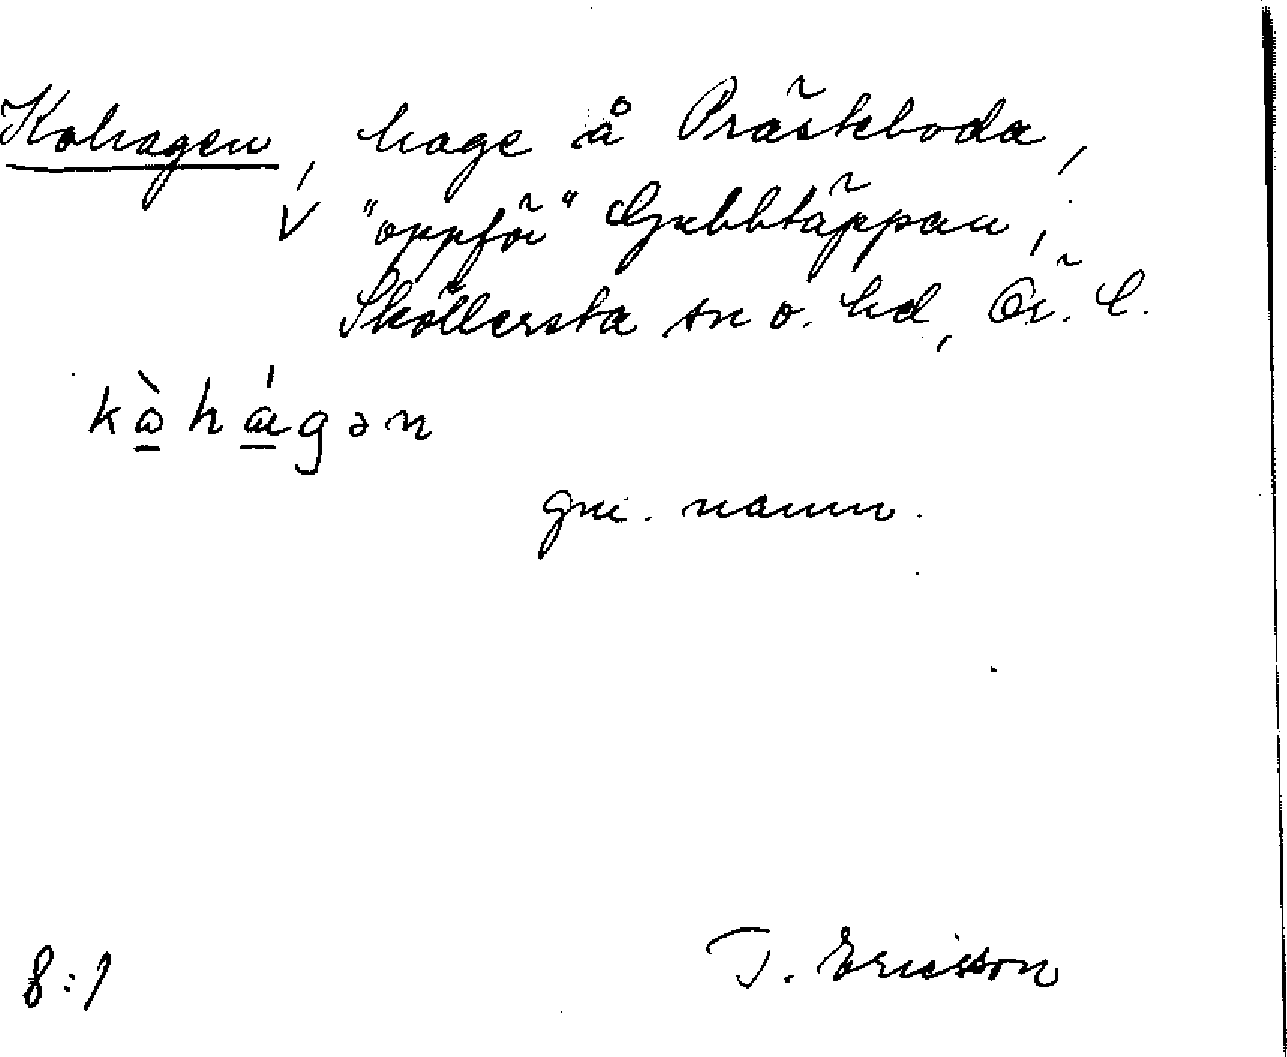 Kohagen, hage å Präskboda,
V "oppför" Gubbtäppan,
Sköllersta sn o. hd, Ör. l.
kò̱há̱gən
gm. namn.
8:1 J. Ericsson